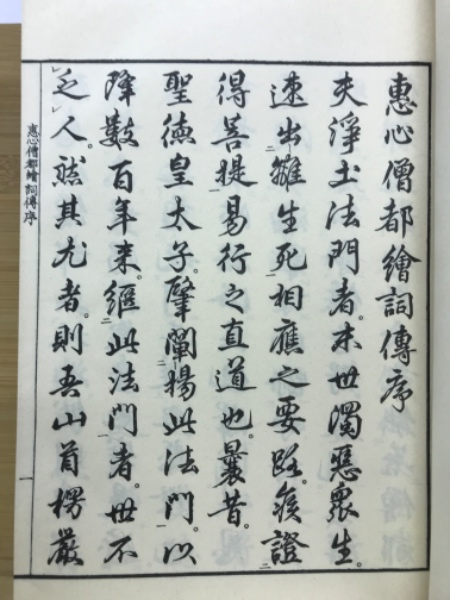 惠心僧都繪詞傳序
夫淨土法門者。末世濁惡衆生。
速出㆓離生死㆒相應之要路。疾證㆓
得菩提㆒易行之直道也。曩昔。
聖德皇太子。肇闡㆓揚此法門㆒。以
降數百年来。繼㆓此法門㆒者。世不㆑
乏㆑人。然其尤者。則吾山首楞嚴
惠心僧都繪詞傳序
一